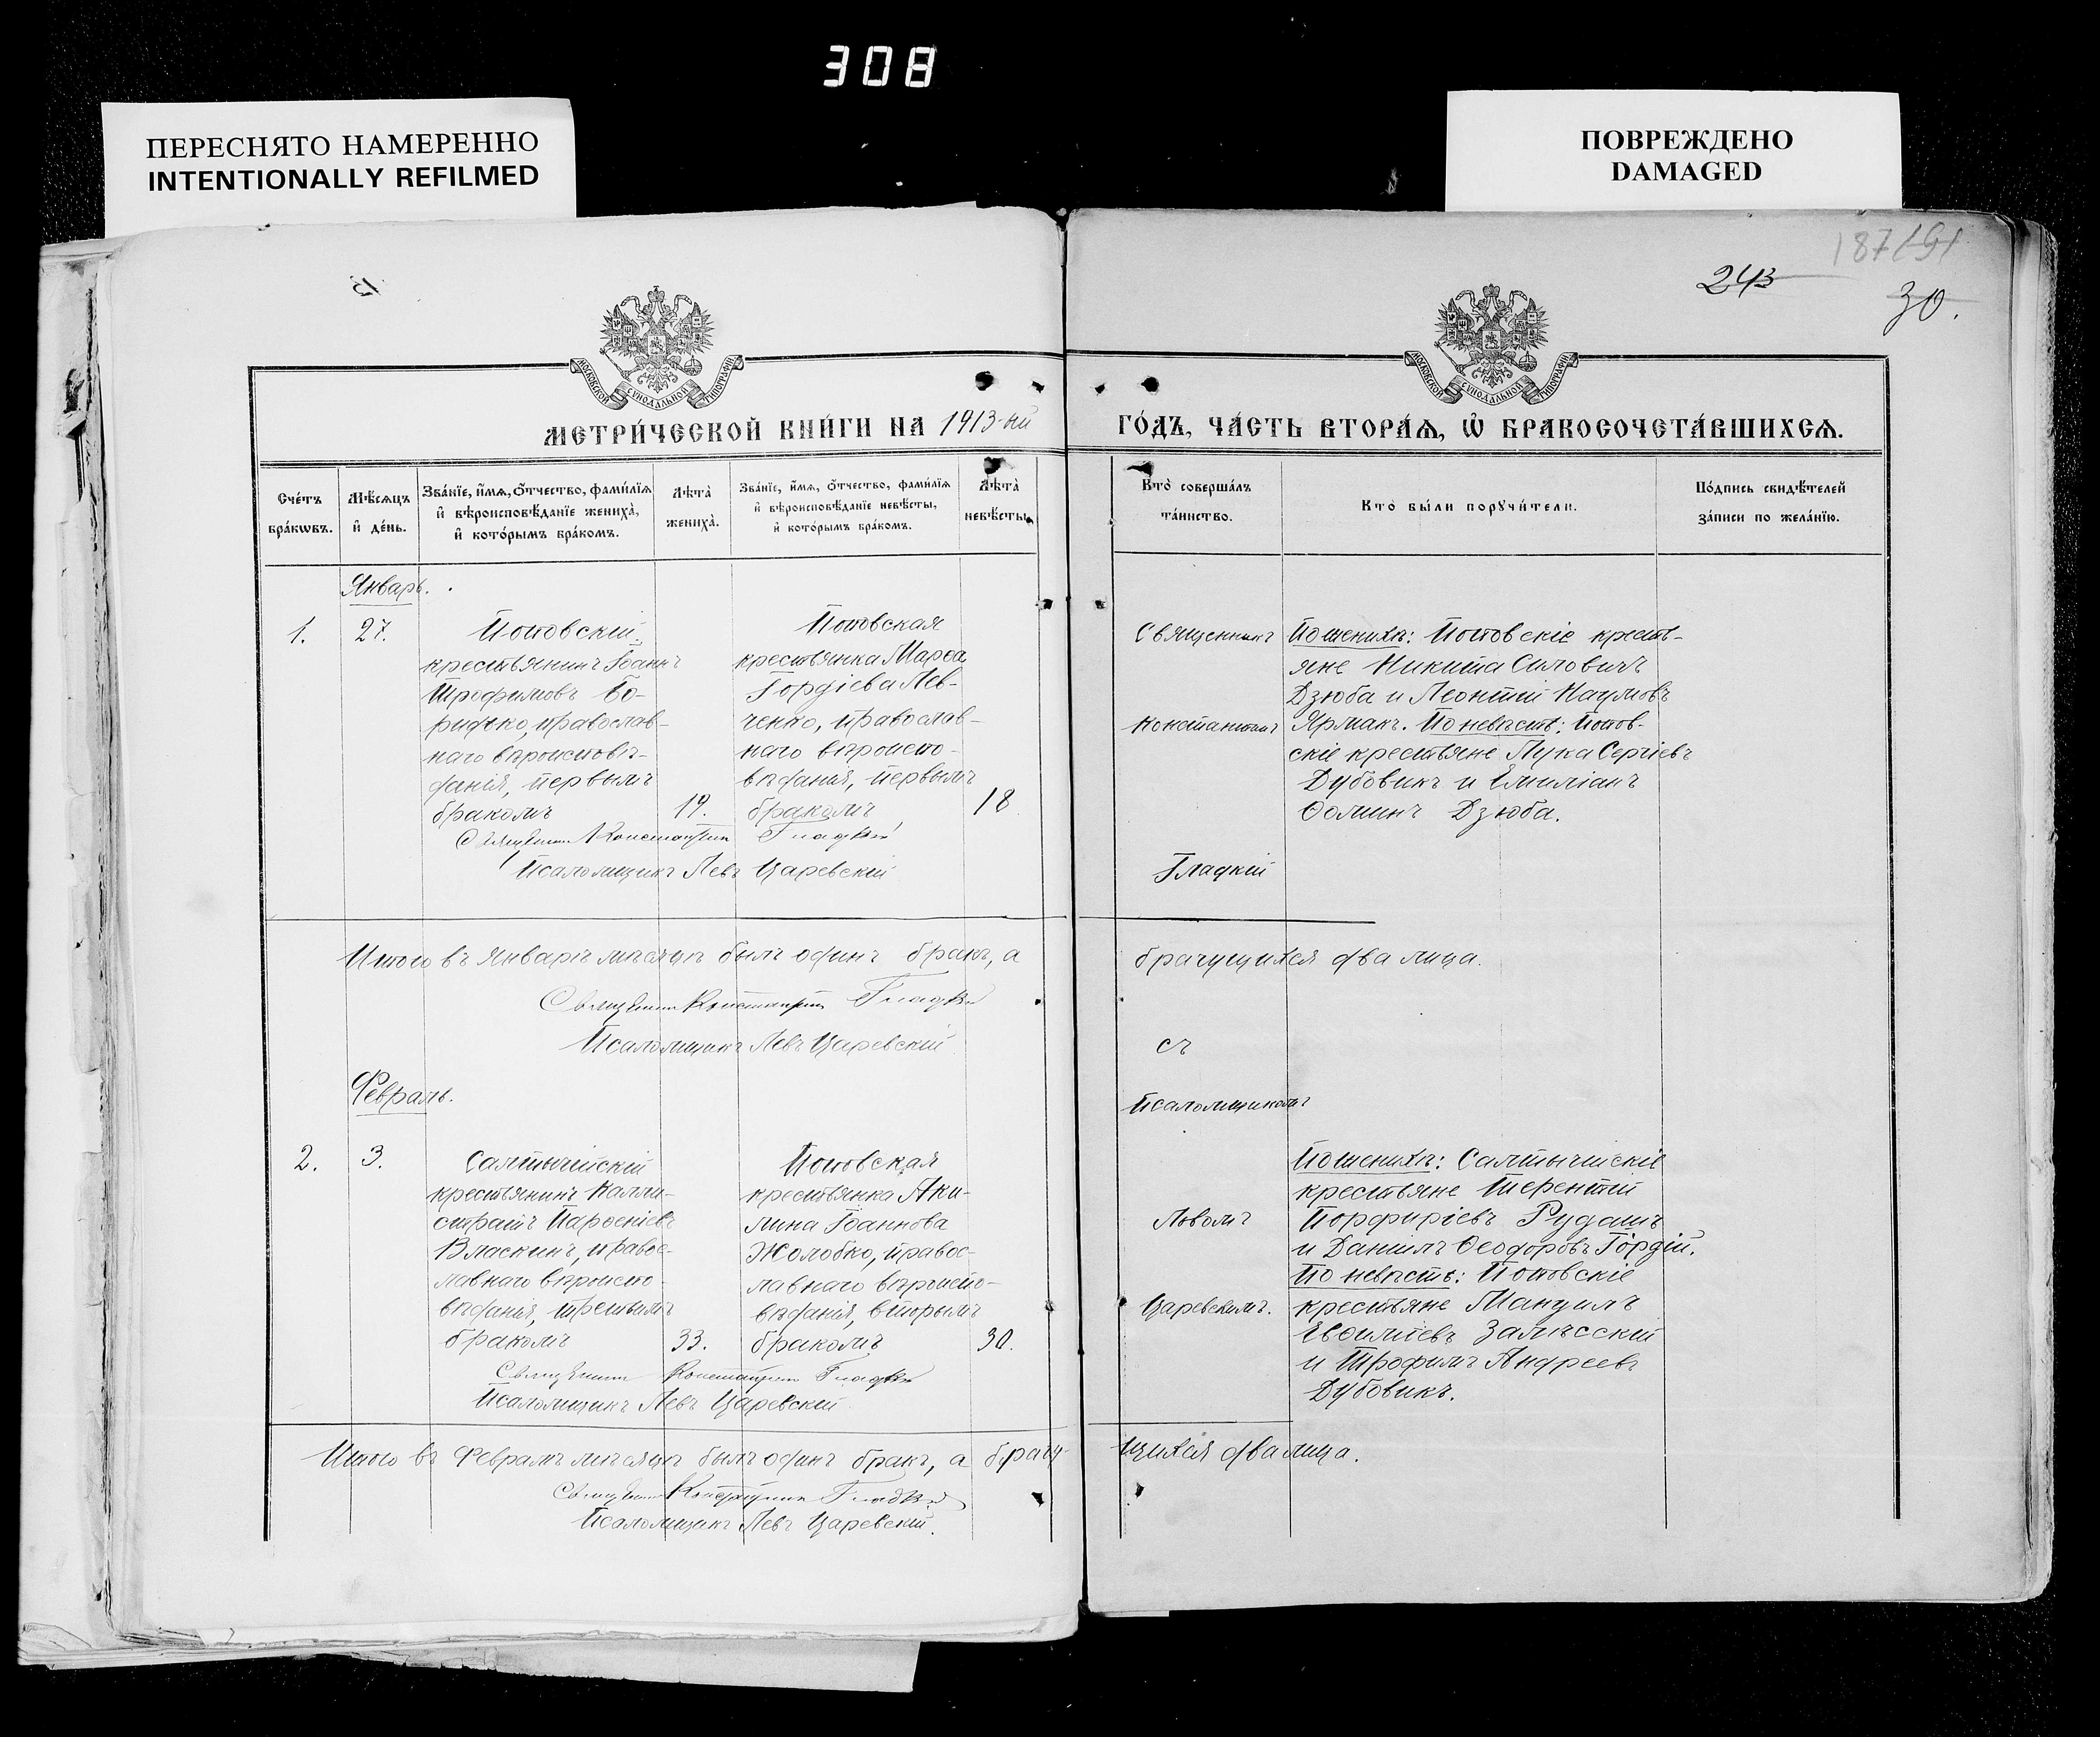 308
ПЕРЕСНЯТО НАМЕРЕННО
INTENTIONALLY REFILMED
ПОВРЕЖДЕНО
DAMAGED
243
30.
МОСКОВСКОЙ СУНОДАЛЬНОЙ ТИПОГРАФІИ
МОСКОВСКОЙ СУНОДАЛЬНОЙ ТИПОГРАФІИ
МЕТРИ́ЧЕСКОЙ КНИ́ГИ НА 1913-ый
ГО́ДЪ, ЧА́СТЬ ВТОРА́Ѧ, Ѡ҆ БРАКОСОЧЕТА́ВШИХСѦ.
Сче́тъ
бра́кѡвъ.
Мѣ́сѧцъ
и҆ де́нь.
Зва́нїе, и҆́мѧ, ѻ҆́тчество, фами́лїѧ
и҆ вѣроисповѣ́данїе жениха̀,
и҆ кото́рымъ бра́комъ.
Лѣта̀
жениха̀.
Зва́нїе, и҆́мѧ, ѻ҆́тчество, фами́лїѧ
и҆ вѣроисповѣ́данїе невѣ́сты,
и҆ кото́рымъ бра́комъ.
Лѣта̀
невѣ́сты.
Кто̀ соверша́лъ
та́инство.
Кто̀ бы́ли порꙋчи́тели.
По́дпись свидѣ́телей
за́писи по жела́нїю.
Январь.
1.
27.
Поповскій
крестьянинъ Іоаннъ
Трофимовъ Бо-
ридько, православ-
наго вѣроисповѣ-
данія, первымъ
бракомъ
19.
Поповская
крестьянка Марѳа
Гордіева Лев-
ченко, православ-
наго вѣроиспо-
вѣданія, первымъ
бракомъ
18
Священникъ Константинъ Гладкій
Псаломщикъ Левъ Царевскій
Священникъ
Константинъ
Гладкій
По женихѣ: Поповскіе кресть-
яне Никита Силовичъ
Дзюба и Леонтій Наумовъ
Ярмакъ. По невѣстѣ: Попов-
скіе крестьяне Лука Сергіевъ
Дубовикъ и Емиліанъ
Ѳоминъ Дзюба.
Итого въ Январѣ мѣсяцѣ былъ одинъ бракъ, а
брачущихся два лица.
Священникъ Константинъ Гладкій
Псаломщикъ Левъ Царевскій
съ
Февраль.
Псаломщикомъ
2.
3.
Салтычійскій
крестьянинъ Калли-
стратъ Парѳеніевъ
Власкинъ, правос-
лавнаго вѣроиспо-
вѣданія, третьимъ
бракомъ
33.
Поповская
крестьянка Аки-
лина Іоаннова
Жолобко, правос-
лавнаго вѣроиспо-
вѣданія, вторымъ
бракомъ
30.
Священникъ Константинъ Гладкій
Псаломщикъ Левъ Царевскій
Львомъ
Царевскимъ.
По женихѣ: Салтычійскіе
крестьяне Терентій
Порфиріевъ Рудашъ
и Даніилъ Ѳеодоровъ Гордій.
По невѣстѣ: Поповскіе
крестьяне Мануилъ
Евѳиміевъ Залѣсскій
и Трофимъ Андреевъ
Дубовикъ.
Итого въ Февралѣ мѣсяцѣ былъ одинъ бракъ, а брачу-
щихся два лица.
Священникъ Константинъ Гладкій
Псаломщикъ Левъ Царевскій.